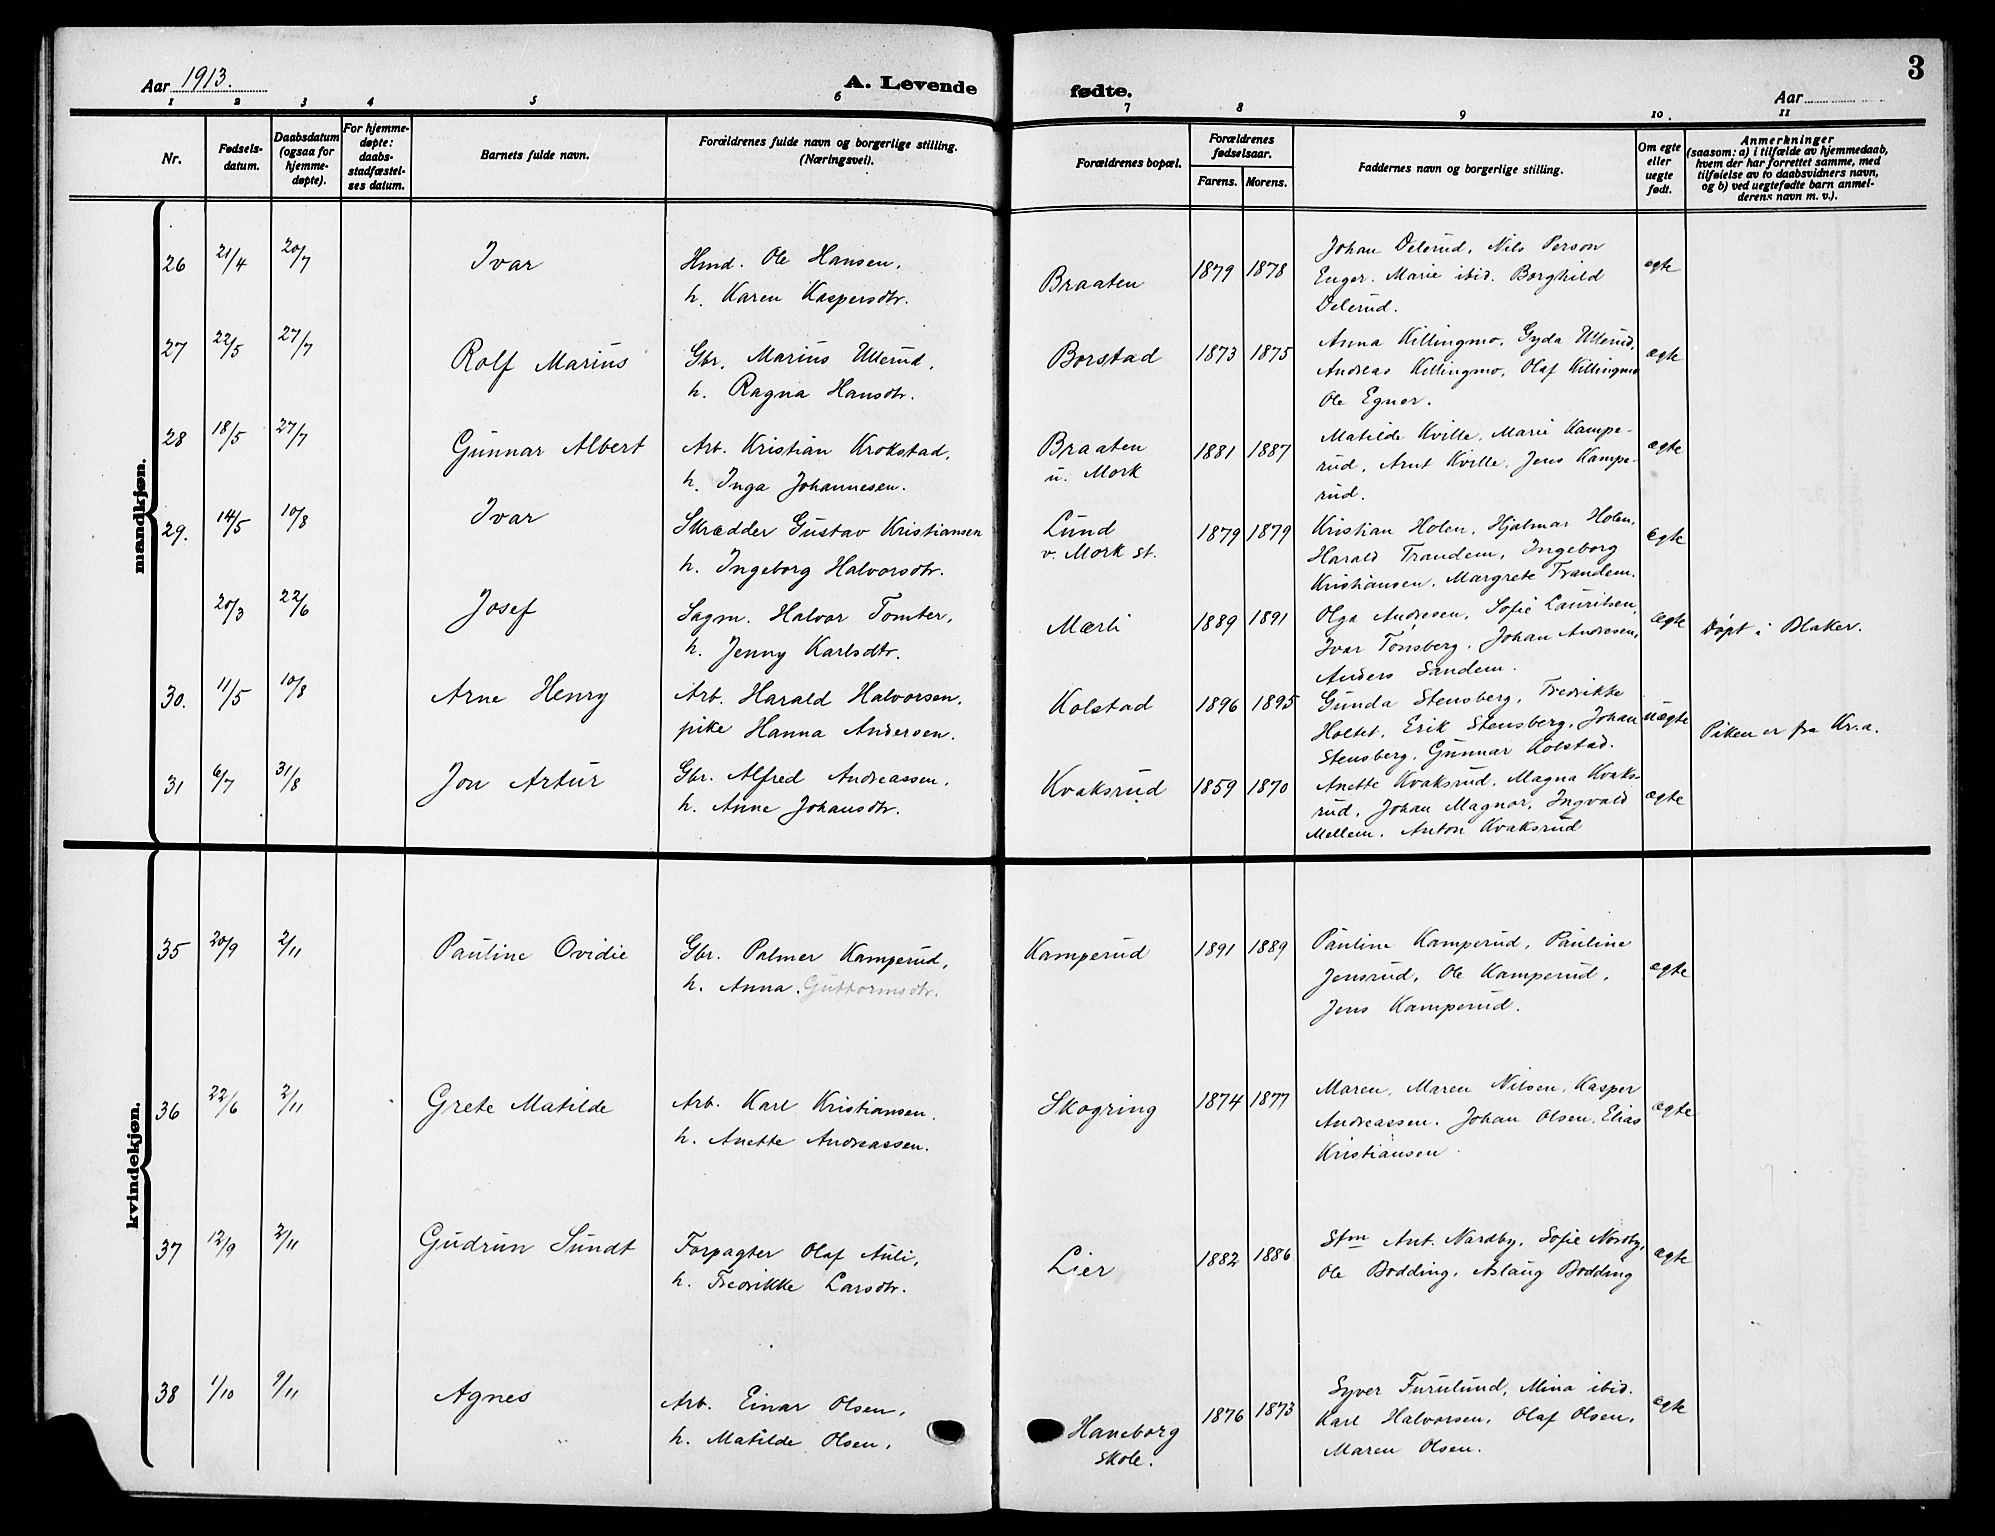 3
Aar 1913.
A. Levende fødte.
Aar
1 2 3 4 5 6 7 8 9 10. 11
Nr.
Fødsels-
datum.
Daabsdatum
(ogsaa for
hjemme-
døpte).
For hjemme-
døpte:
daabs-
stadfæstel-
ses datum.
Barnets fulde navn.
Forældrenes fulde navn og borgerlige stilling.
(Næringsvei).
Forældrenes bopæl.
Forældrenes
fødselsaar.
Farens. Morens.
Faddernes navn og borgerlige stilling.
Om egte
eller
uegte
født.
Anmerkninger
(saasom: a) i tilfælde av hjemmedaab,
hvem der har forrettet samme, med
tilføielse av to daabsvidners navn,
og b) ved uegtefødte barn anmel-
derens navn m. v.).
mandkjøn.
26 21/4 20/7 Ivar
Hmd. Ole Hansen,
h. Karen Kaspersdtr.
Braaten
1879 1878
Johan Delerud, Nils Person
Enger. Marie ibid. Borghild
Delerud.
egte
27 22/5 27/7 Rolf Marius
Gbr. Marius Ullerud,
h. Ragna Hansdtr.
Borstad
1873 1875
Anna Killingmo, Gyda Ullerud,
Andreas Killingmo, Olaf Killingmo
Ole Egner.
ægte
28 18/5 27/7 Gunnar Albert
Arb. Kristian Krokstad,
h. Inga Johannesen.
Braaten
u. Mork
1881 1887
Matilde Kville, Marie Kampe-
rud, Arnt Kville, Jens Kampe-
rud.
ægte
29. 14/5 10/8 Ivar
Skrædder Gustav Kristiansen
h. Ingeborg Halvorsdtr.
Lund
v. Mork st.
1879 1879
Kristian Holen, Hjalmar Holen,
Harald Trandem, Ingeborg
Kristiansen, Margrete Trandem.
ægte
20/3 22/6 Josef
Sagm. Halvor Tomter,
h. Jenny Karlsdtr.
Mærli
1889 1891
Olga Andresen, Sofie Lauritsen,
Ivar Tønsberg, Johan Andresen,
Anders Sandem.
ægte
Døpt i Blaker.
30. 11/5 10/8 Arne Henry
Arb. Harald Halvorsen,
pike Hanna Andersen.
Kolstad
1896 1895
Gunda Stensberg, Fredrikke
Holtet, Erik Stensberg, Johan
Stensberg, Gunnar Kolstad.
uægte
Piken er fra Kr.a.
31 6/7 31/8 Jon Artur
Gbr. Alfred Andreassen,
h. Anne Johansdtr.
Kvaksrud
1859 1870
Anette Kvaksrud, Magna Kvaks-
rud, Johan Magnor, Ingvald
Mellem, Anton Kvaksrud
ægte
kvindekjøn.
35 20/9 2/11 Pauline Ovidie
Gbr. Palmer Kamperud,
h. Anna Guttormsdtr.
Kamperud
1891 1889
Pauline Kamperud, Pauline
Jensrud, Ole Kamperud,
Jens Kamperud.
ægte
36 22/6 2/11 Grete Matilde
Arb. Karl Kristiansen,
h. Anette Andreassen.
Skogring
1874 1877
Maren, Maren Nilsen, Kasper
Andreassen, Johan Olsen, Elias
Kristiansen.
ægte
37 12/9 2/11 Gudrun Sundt
Forpagter Olaf Auli,
h. Fredrikke Larsdtr.
Lier
1882 1886
Stm Ant. Nordby, Sofie Nordby,
Ole Bodding, Aslaug Bodding
ægte
38 1/10 9/11 Agnes
Arb. Einar Olsen,
h. Matilde Olsen,
Haneborg
skole.
1876 1873
Syver Furulund, Mina ibid.
Karl Halvorsen, Olaf Olsen,
Maren Olsen.
egte